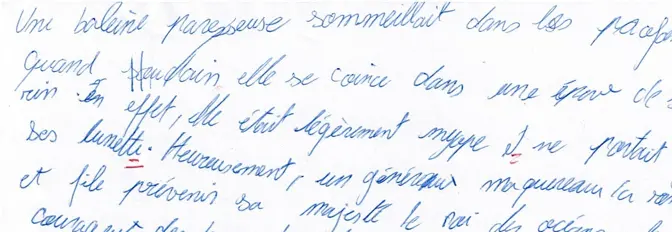 Une baleine paresseuse sommeillait dans les
quand soudain elle se coince dans une épave de
rin. En effet, elle était légèrement myope et ne portait
ses lunette. Heureusement, un généreux maquereau la
et file prévenir sa majesté le roi des océans